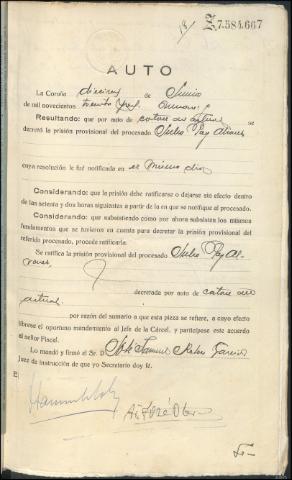 18/
Z7.584.667
AUTO
La Coruña diecisiete de Junio
de mil novecientos treinta y
Resultando: que por auto de catorce del actual se
decretó la prisión provisional del procesado Julio
cuya resolución le fué notificada en el mismo día
Considerando: que la prisión debe ratificarse o dejarse sin efecto dentro
de las setenta y dos horas siguientes a partir de la en que se notifique al procesado.
Considerando: que subsistiendo como por ahora subsisten los mismos
fundamentos que se tuvieron en cuenta para decretar la prisión provisional del
referido procesado, procede ratificarla.
Se ratifica la prisión provisional del procesado Julio
decretada por auto de catorce del
actual.
por razón del sumario a que esta pieza se refiere, a cuyo efecto
líbrese el oportuno mandamiento al Jefe de la Cárcel, y participese este acuerdo
al señor Fiscal.
Lo mandó y firmó el Sr. D. Samuel
Juez de instrucción de que yo Secretario doy fé.
E